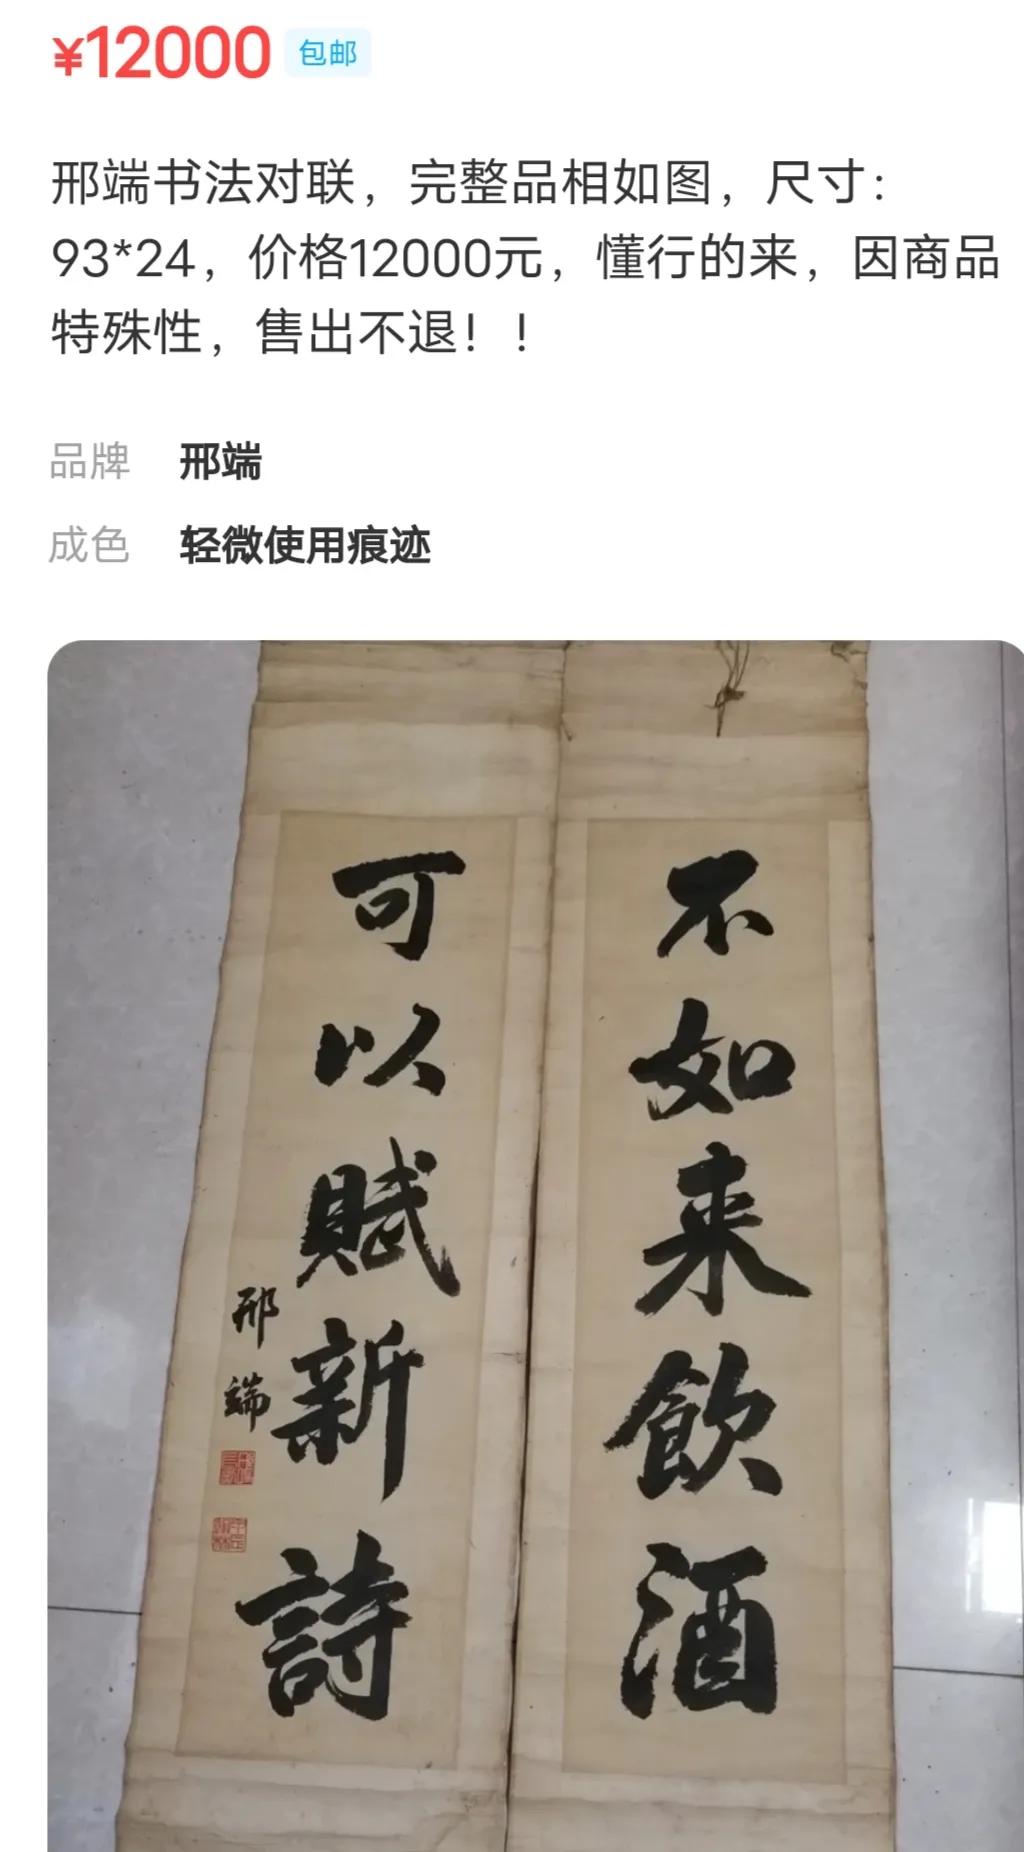 ¥12000 包邮
邢端书法对联，完整品相如图，尺寸：
93*24，价格12000元，懂行的来，因商品
特殊性，售出不退！！
品牌 邢端
成色 轻微使用痕迹
不如来飲酒
可以賦新詩
邢端